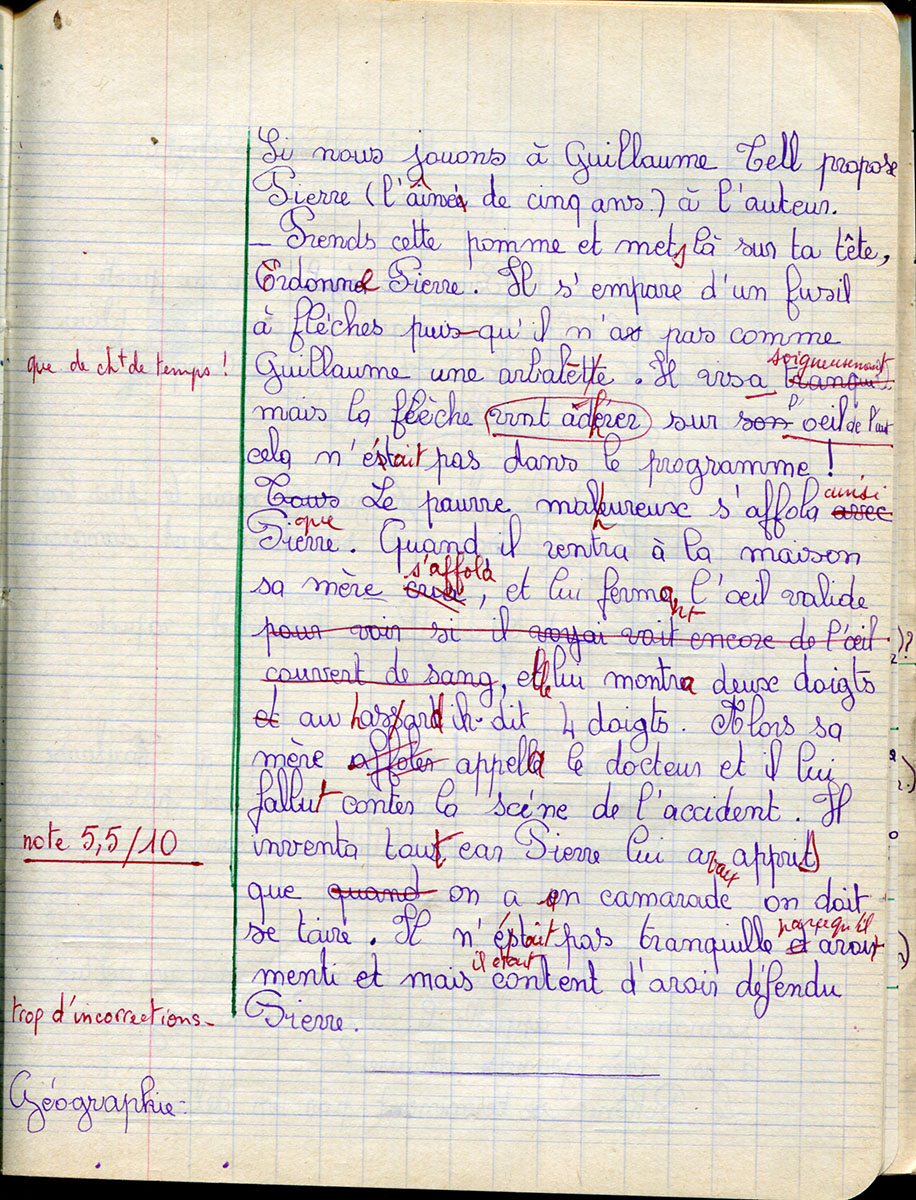 Si nous jouons à Guillaume Tell propose
Pierre (l'aîné de cinq ans.) à l'auteur.
_ Prends cette pomme et mets là sur ta tête,
Ordonne Pierre. Il s'empare d'un fusil
à flèches puis qu'il n'a pas comme
que de cht de temps !
soigneusement
Guillaume une arbalète. Il visa tranqu
mais la flèche vint adhérer sur son l'oeil de l'aut
cela n'était pas dans le programme !
Tous Le pauvre malheureux s'affola avec ainsi
que
Pierre. Quand il rentra à la maison
s'affola
sa mère cria, et lui fermant l'oeil valide
pour voir si il voyai vait encore de l'œil )?
couvert de sang, elle lui montra deux doigts
et au hasard il dit 4 doigts. Alors sa
mère affoler appela le docteur et il lui
fallut conter la scène de l'accident. Il
note 5,5/10
inventa tout car Pierre lui avait appris
que quand on a un camarade on doit
se taire. Il n'était pas tranquille et parce qu'il avait
il était
menti et mais content d'avoir défendu
trop d'incorrections_
Pierre.
Géographie: